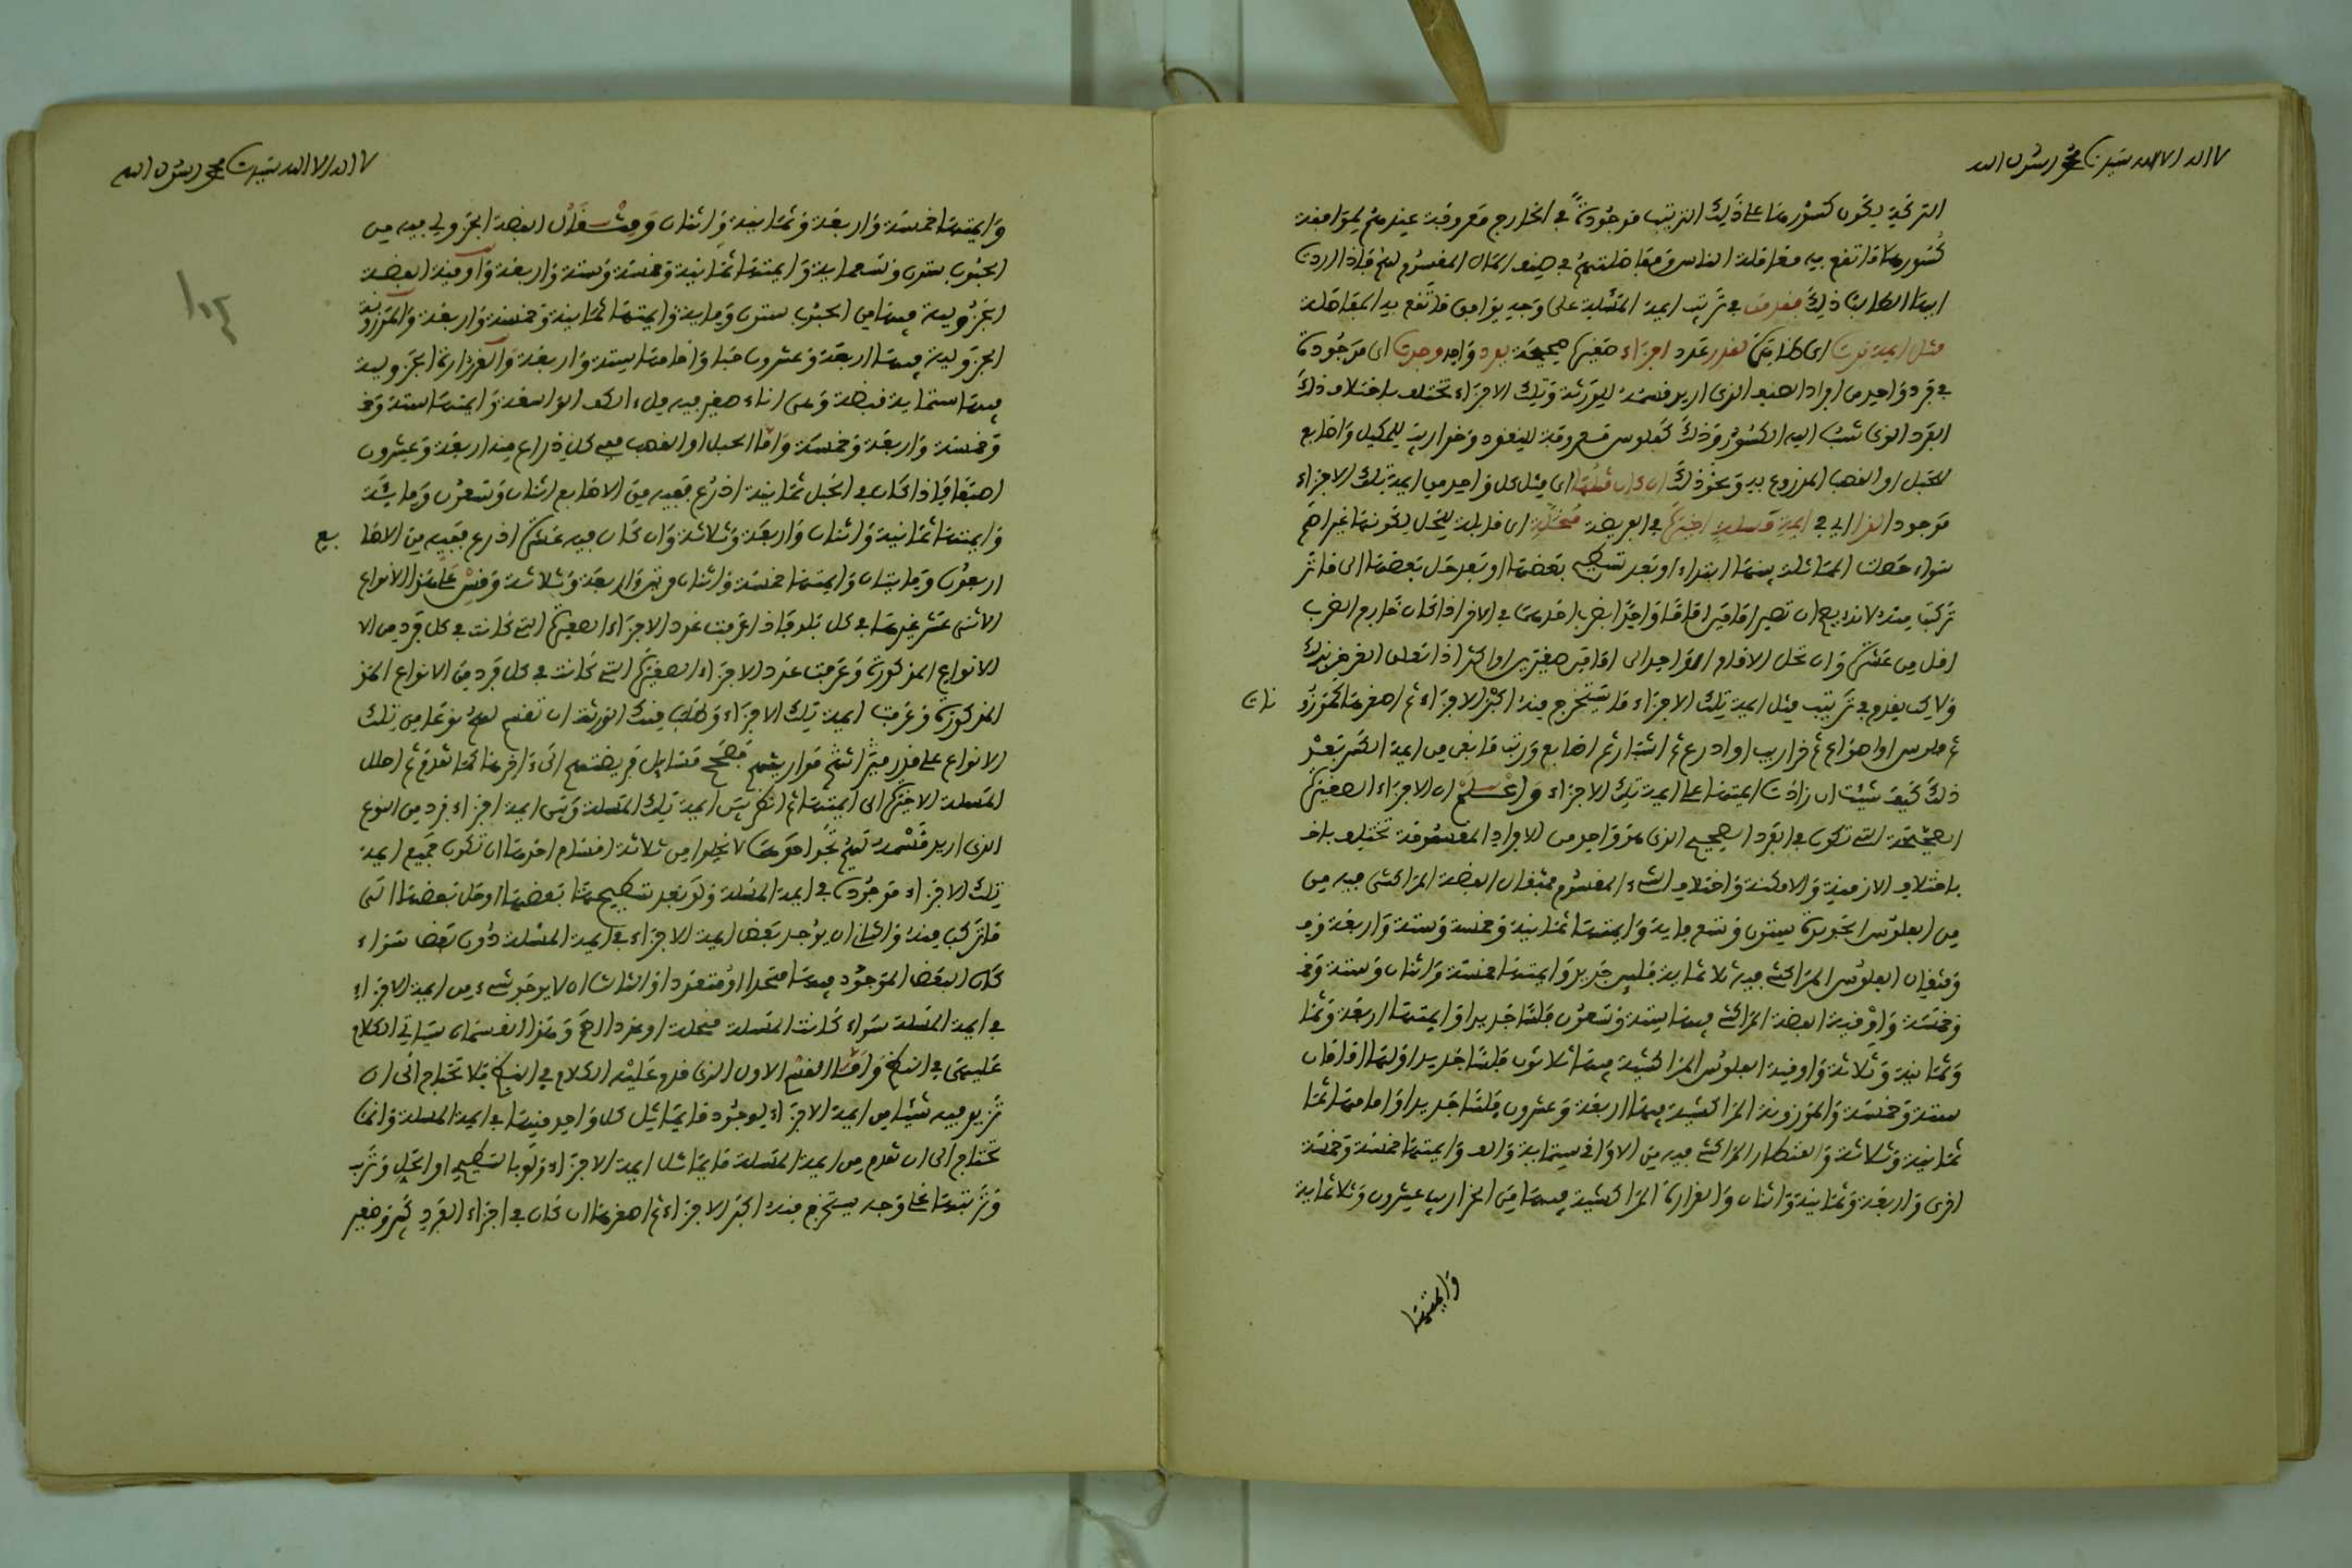 لا اله الا الله سيدنا محمد رسول الله
التركة يكون كسورها على ذلك الترتيب موجودة في الخارج معروفة عندهم ليوافقه
كسورها ما تقع به معاملة الناس ومفاصلتهم في صنف المال المقسوم لهم فاذا اردت
ايها الطالب ذلك فقدمن في ترتيب ايمة المسئلة على وجه يوافق ما تقع به المفاصلة
مثل ايمة قرن اي طابق لقدر عدد اجزاء صغيرة صحيحة بفرد واحد وجدت اي موجودة
في فرد واحد من افراد الصنف الذي اريد قسمته للورثة وتلك الاجزاء تختلف باختلاف ذلك
الفرد الذي نسبت اليه الكسور وذلك كفلوس معروفة للنقود وخواريب للمكيل واصابع
للحبل او القصب المذروع به ونحو ذلك ان كان مثلها اي مثل كل واحد من ايمة تلك الاجزاء
موجودا الفا اي في ايمة مسئلة اخيرة في الفريضة منحلة اي قابلة للحل لكونها غير اصم
سواء حصلت المماثلة بينهما ابتداء او بعد تسطيح بعضها او بعد حل بعضها الى ما تر
تركب منه لانه يصح ان تصير امامين اماما واحدا بضرب احدهما في الاخر اذا كان خارج الضرب
اقل من عشرة وان تحل الامام الواحد الى امامين صغيرين او اكثر اذا تعلق الغرض بذلك
ولاكن يقدم في ترتيب مثل ايمة تلك الاجزاء ما يستخرج منه اكبر الاجزاء ثم اصغرها كموزو
نات
ثم فلوس او اصواع ثم خراريب او اذرع ثم اشبار ثم اصابع ورتب ما بقي من ايمة الكسر بعد
ذلك كيف شئت ان زادت ايمتها على ايمة تلك الاجزاء واعلم ان الاجزاء الصغيرة
الصحيحة التي تكون في الفرد الصحيح الذي هو واحد من الافراد المقسومة تختلف باخـ
باختلاف الازمنة والامكنة واختلاف الشيء المقسوم فمثقال الفضة المراكشي فيه من
من الفلوس الجديدة ستون وتسع ماية وايمتها ثمانية وخمسة وستة واربعة وخـ
ومثقال الفلوس المراكشي فيه ثلاثماية فلس جديد وايمتها خمسة واثنان وستة وخـ
وخمسة واوقية الفضة المراكشي فيها ستة وتسعون فلسا جديدا وايمتها اربعة وثما
وثمانية وثلاثة واوقية الفلوس المراكشية فيها ثلاثون فلسا جديدا ولها امامان
ستة وخمسة والموزونة المراكشية فيها اربعة وعشرون فلسا جديدا واماماها ثما
ثمانية وثلاثة والقنطار المراكشي فيه من الاواقي ستماية والف وايمتها خمسة وخمسة
اخرى واربعة وثمانية واثنان والغرارة المراكشية فيها من الخراريب عشرون وثلاثماية
وايمتها
لا اله الا الله سيدنا محمد رسول الله
وايمتها خمسة واربعة وثمانية واثنان ومثقال الفضة الجزولي فيه من
الحبوب ستون وتسعماية وايمتها ثمانية وخمسة وستة واربعة واوقية الفضة
الجزولية فيها من الحبوب ستون وماية وايمتها ثمانية وخمسة واربعة والموزونة
الجزولية فيها اربعة وعشرون حبا واماماها ستة واربعة والغرارة الجزولية
فيها ستماية قبضة وهي اناء صغير فيه ملء الكف الواسعة وايمتها ستة وخـ
وخمسة واربعة وخمسة واما الحبل او القصب ففي كل ذراع منه اربعة وعشرون
اصبعا فاذا كان في الحبل ثمانية اذرع ففيه من الاصابع اثنان وتسعون وماية
وايمتها ثمانية واثنان واربعة وثلاثة وان كان فيه عشرة اذرع ففيه من الاصا
بع
اربعون ومايتان وايمتها خمسة واثنان واربعة وثلاثة وقس على هذا الانواع
الاثني عشر غيرها في كل بلد فاذا عرفت عدد الاجزاء الصغيرة التي كانت في كل فرد من الا
الانواع المذكورة وعرفت عدد الاجزاء الصغيرة التي كانت في كل فرد من الانواع المذ
المذكورة وعرفت ايمة تلك الاجزاء وطلب منك الورثة ان تقسم لهم نوعا من تلك
الانواع على قدر ميراثهم مواريثهم فصحح مسايل فريضتهم الى ءاخرها كما تقدم ثم احلل
المسئلة الاخيرة الى ايمتها ثم انظر بين ايمة تلك المسئلة وبين ايمة اجزاء فرد من النوع
الذي اريد قسمه لهم تجد احوالها لا تخلوا من ثلاثة اقسام احدها ان تكون جميع ايمة
تلك الاجزاء موجودة في ايمة المسئلة ولو بعد تسطيح بعضها او حل بعضها الى
ما تركب منه والثاني ان يوجد بعض ايمة الاجزاء في ايمة المسئلة دون بعض سواء
كان البعض الموجود فيها متحدا او متعددا والثالث ان لا يوجد شيء من ايمة الاجزاء
في ايمة المسئلة سواء كانت المسئلة منحلة او عددا اصم وهذا القسمان سياتي الكلام
عليهما في النظم واما القسم الاول الذي قدم عليه الكلام في النظم فلا تحتاج الى ان
تزيد فيه شيئا من ايمة الاجزاء لوجود ما يماثل كل واحد منها في ايمة المسئلة وانما
تحتاج الى ان تقدم من ايمة المسئلة ما يماثل ايمة الاجزاء ولو بالتسطيح او الحل وترتب
وترتبها على وجه يستخرج منه اكبر الاجزاء ثم اصغرها ان كان في اجزاء الفرد كبير وصغير